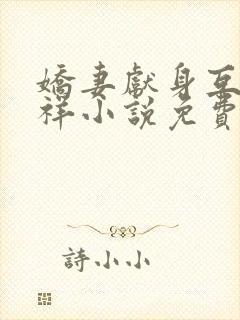 嬌妻獻身互
祥小說免費
詩小小